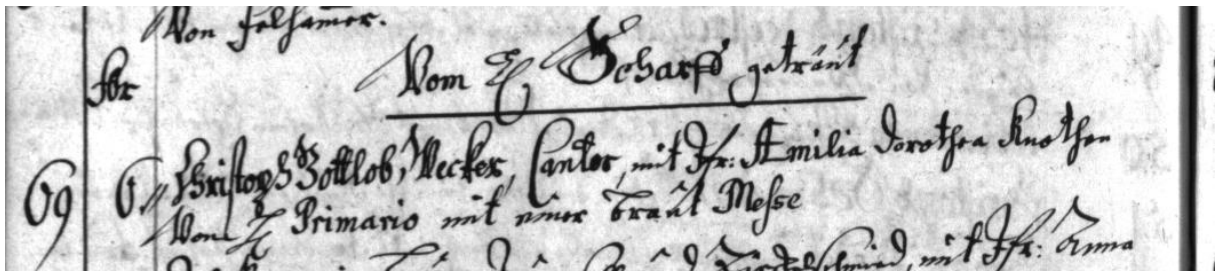 Von Felhamer.
Vom H Scharff getraut
69 6. Christoph Gottlob Wecker, Cantor, mit Jfr: Æmilia Dorothea Knothen
Vom H Primario mit einer Braut Messe
Schmied, mit Jfr: Anna